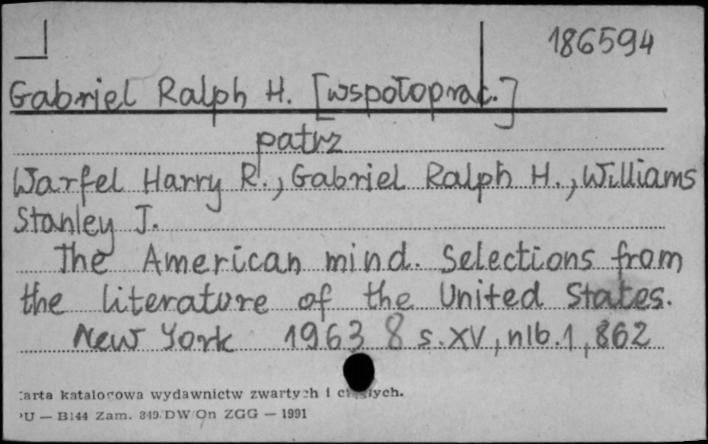 186594
Gabriel Ralph H. [współoprac.]
patrz
Warfel Harry R., Gabriel Ralph H., Williams
Stanley J.
The American mind. Selections from
the literature of the United States.
New York 1963 8 s. XV, nlb. 1, 862
arta katalogowa wydawnictw zwartych i ciągłych.
PU — B144 Zam. 349/DW/On ZGG — 1991